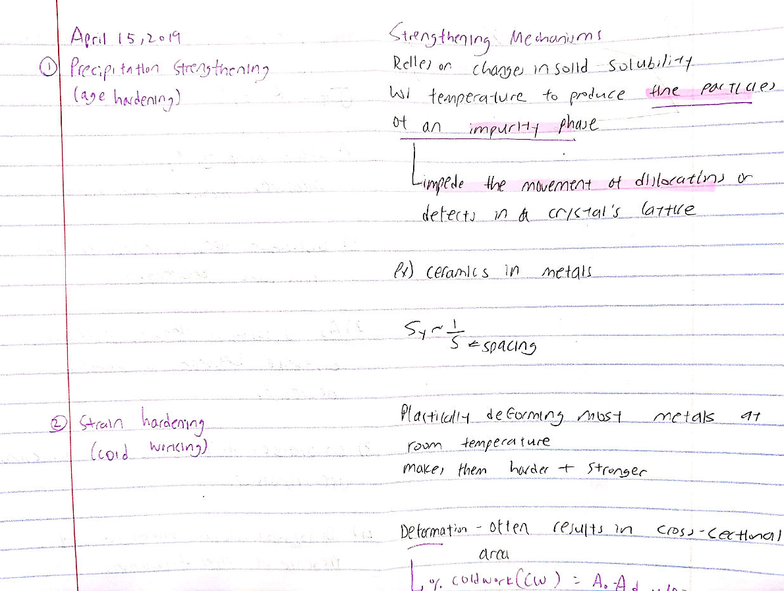 April 15, 2019
Strengthening Mechanisms
① Precipitation Strengthening
(age hardening)
Relies on changes in solid solubility
w/ temperature to produce fine particles
of an impurity phase
impede the movement of dislocations or
defects in a crystal's lattice
ex) ceramics in metals
Sy ~ 1/S ← spacing
② Strain hardening
(cold working)
Plastically deforming most metals at
room temperature
makes them harder + stronger
Deformation - often results in cross-sectional
area
% coldwork (CW) = A₀ - Ad